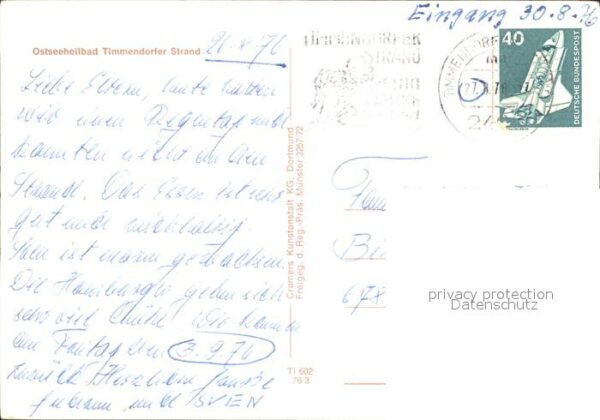 Eingang 30.8.76
Ostseeheilbad Timmendorfer Strand
26.8.76
TIMMENDORFER
STRAND
40
DEUTSCHE BUNDESPOST
27.8.76
Liebe Eltern, heute hatten
wir einen Regentag und
konnten nicht an den
Strand. Das Essen ist sehr
gut und reichhaltig.
Sven ist gewachsen.
Die Hamburger geben sich
sehr viel Mühe. Wir kommen
am Freitag den 3.9.76
zurück Herzliche Grüße
und SVEN
Cramers Kunstanstalt KG, Dortmund
Freigeg. d. Reg.-Präs. Münster 3257/72
Ti 602
76 3
Fam
678
privacy protection
Datenschutz